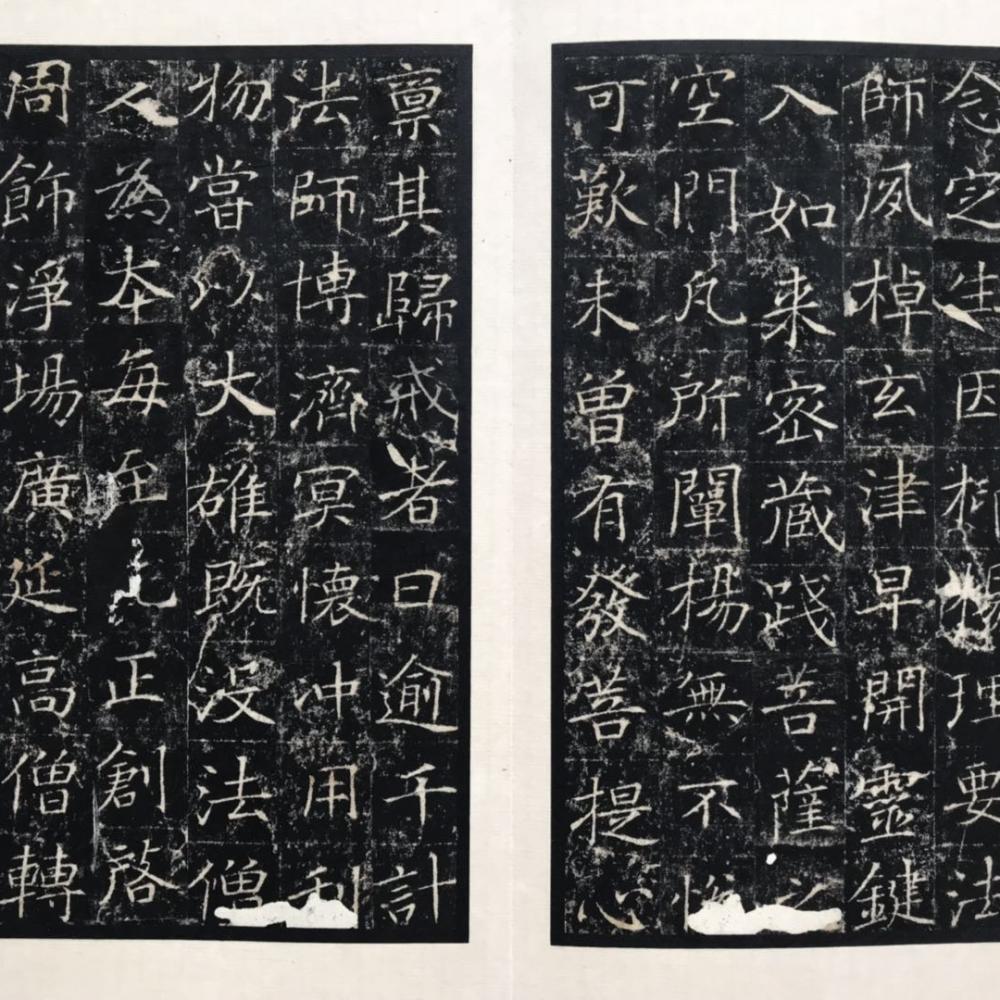 念定生因理要法
師夙棹玄津早開靈鍵
入如来密藏踐菩薩之
空門凡所闡楊無不
可歎未曽有發菩提心
稟其歸戒者日逾千計
法師博濟冥懷冲用利
物當以大雄既没法僧
人為本每至元正創啓
周飾淨場廣延高僧轉